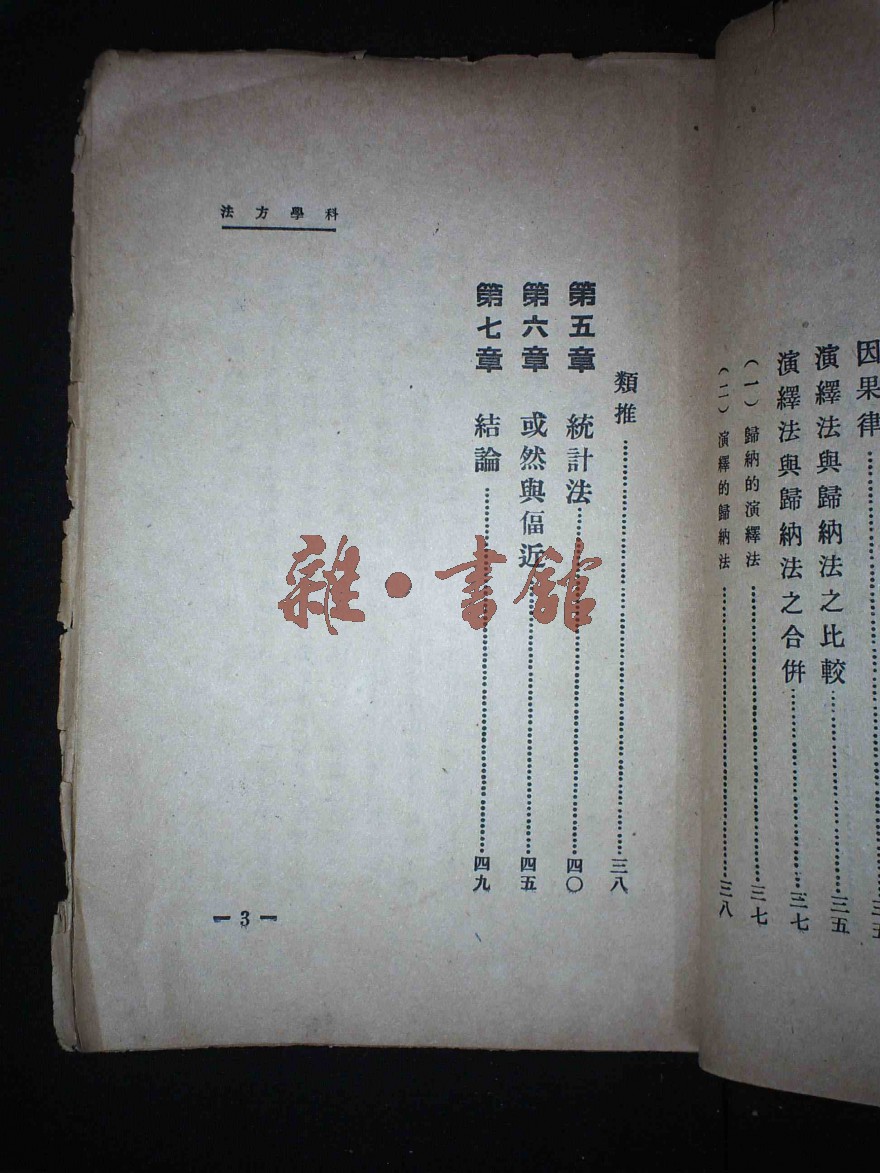 因果律……三五
演繹法與歸納法之比較……三五
演繹法與歸納法之合併……三七
（一）歸納的演繹法……三七
（二）演繹的歸納法……三八
科學方法
類推……三八
第五章 統計法……四〇
第六章 或然與偪近……四五
第七章 結論……四九
— 3 —
雜·書館